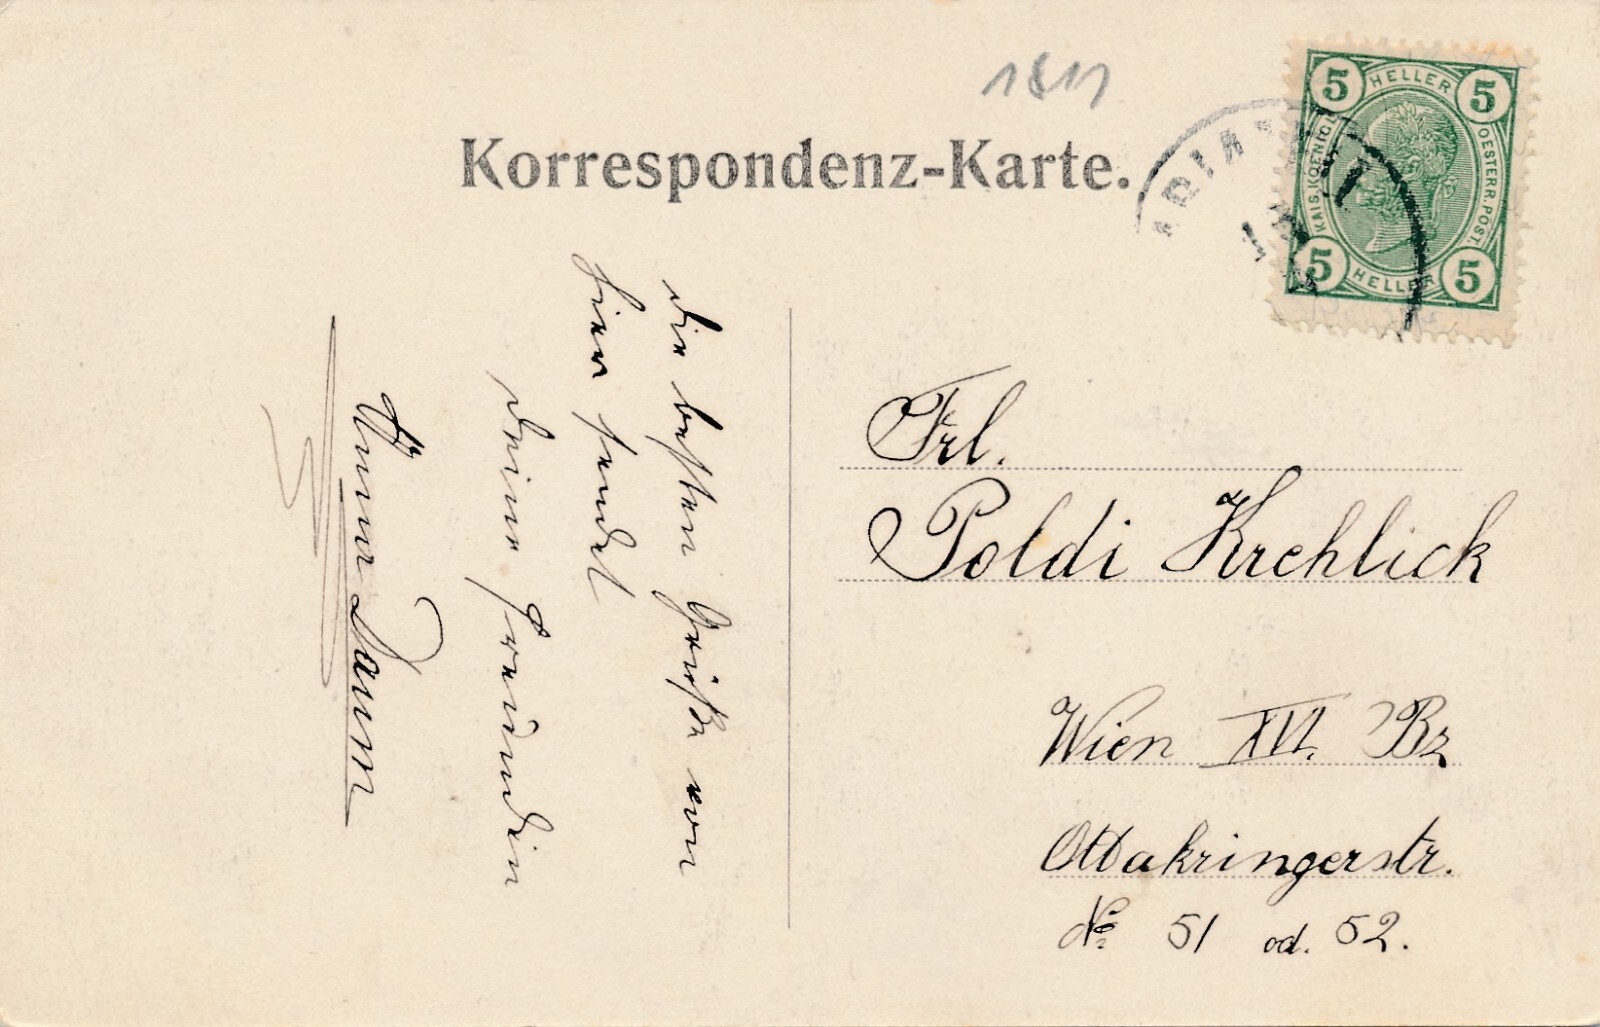 1811
Korrespondenz-Karte.
5 HELLER 5
KAIS. KOENIGL.
OESTERR. POST.
5 HELLER 5
die besten Grüße von
hier sendet
deine Freundin
Anna Daum
Frl.
Poldi Krehlick
Wien XVI. Bz
Ottakringerstr.
No 51 od. 52.